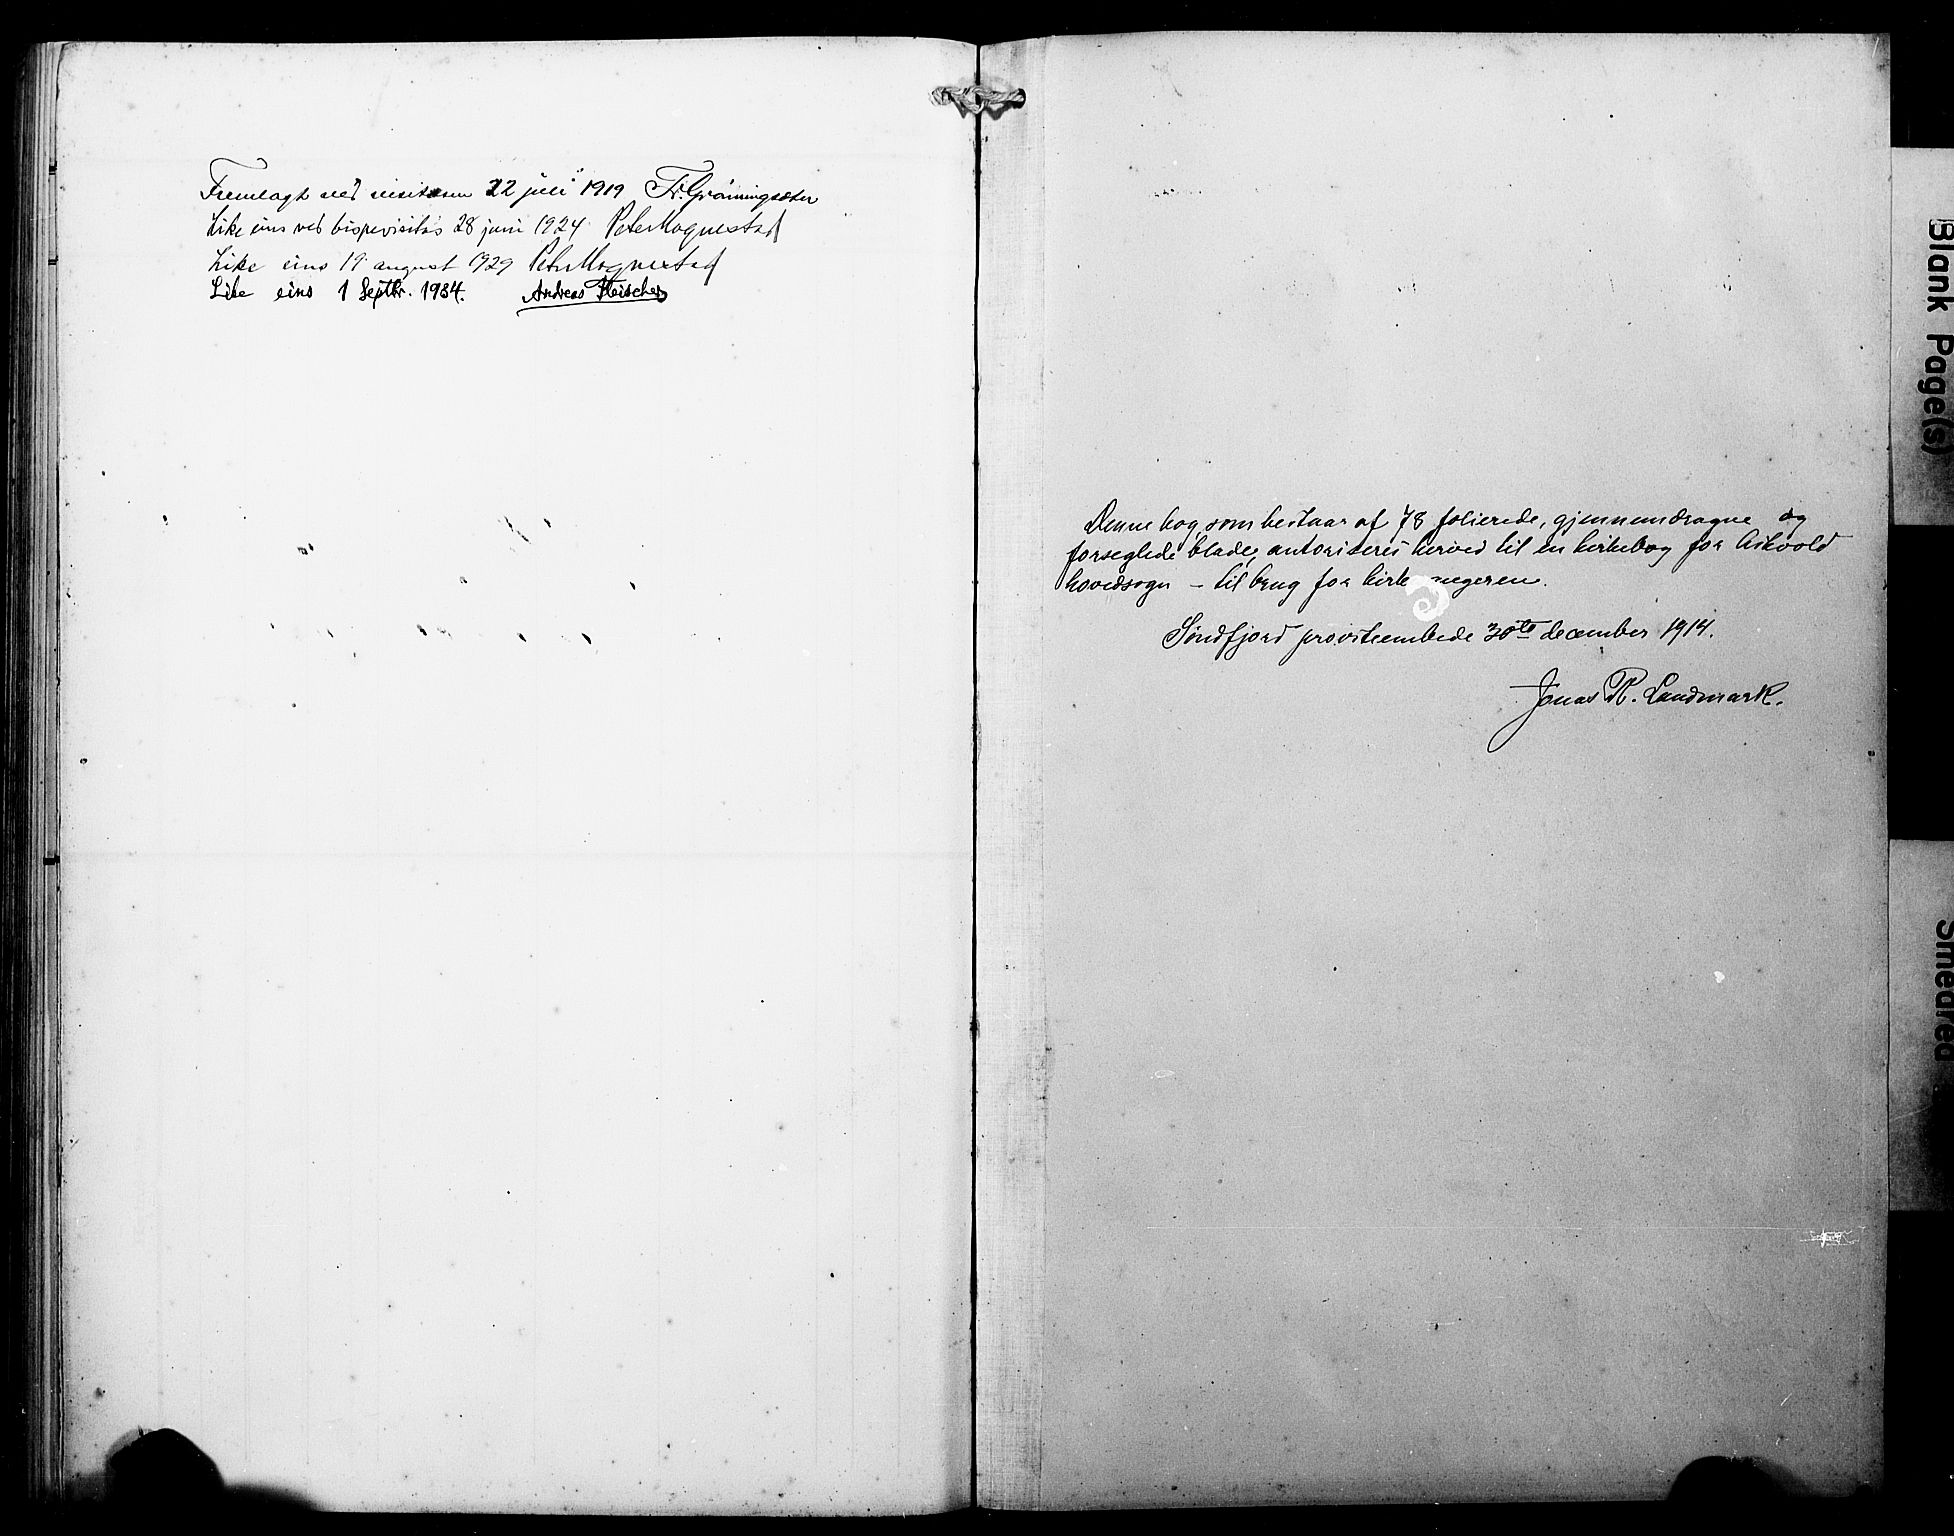 Fremlagt ved visitasen 22 juli 1919 Fr. Grønningsæter
Like eins ved bispevisitas 28 juni 1924 Peter Hognestad
Like eins 19 august 1929 Peter Hognestad
Like eins 1 Septbr. 1934. Andreas Fleischer
Denne bog, som bestaar af 78 folierede, gjennemdragne og
forseglede blade, autoriseres herved til en kirkebog for Askvold
hovedsogn – til brug for kirkesangeren.
Søndfjord provsteembede 30te december 1914.
Jonas R. Landmark.
Blank Page(s)
Smeared